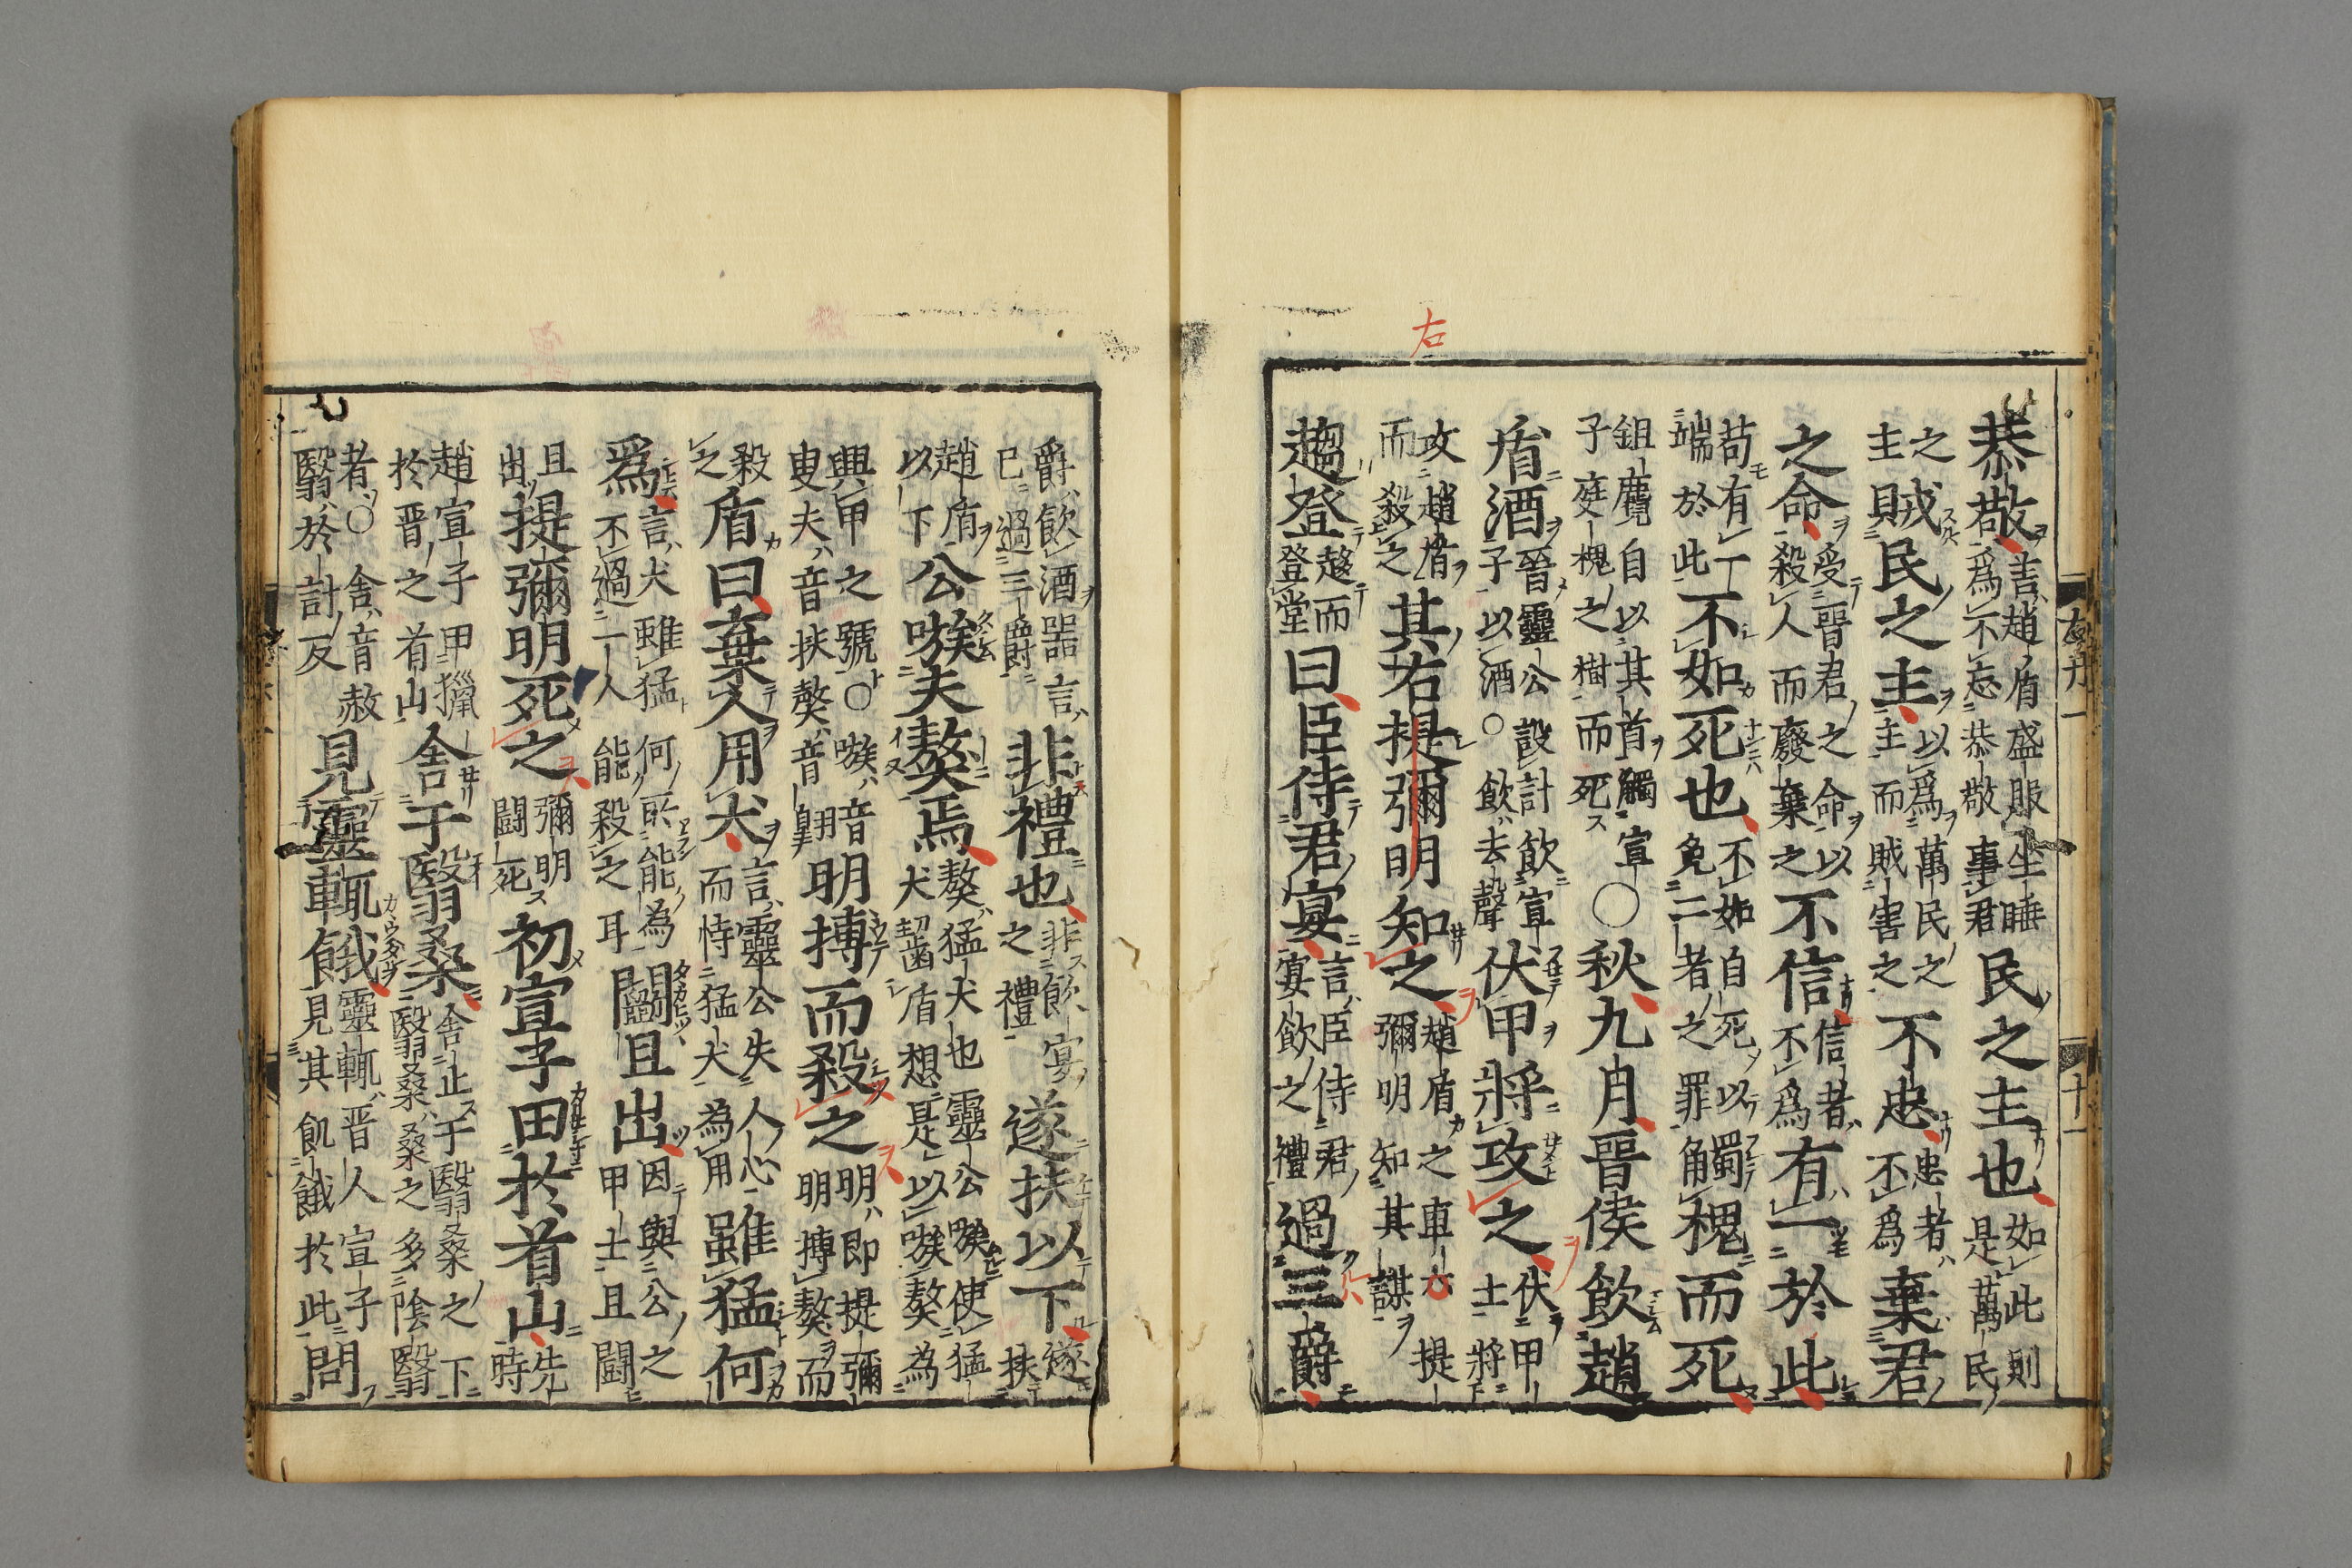 右
恭敬言趙盾盛服坐睡爲不忘恭敬事君民之主也如此則是萬民
之主賊民之主以爲萬民之主而賊害之不忠忠者不爲棄君
之命受晉君之命以殺人而廢棄之不信信者不爲有一於此
苟有一端於此不如死也不如自死以免二者之罪觸槐而死
鉏麑自以其首觸宣子庭槐之樹而死○秋九月晉侯飲趙
盾酒晉靈公設計飲宣子以酒○飲去聲伏甲將攻之伏甲士將
攻趙盾而殺之其右提彌明知之趙盾之車右提彌明知其謀
趨登趨而登堂曰臣侍君宴言臣侍君宴飲之禮過三爵
十一
爵飲酒器言已過三爵非禮也非飲宴之禮遂扶以下遂扶
趙盾以下公嗾夫獒焉獒猛犬也靈公嗾使猛犬齧盾想是以嗾獒為
興甲之號○嗾音叟夫音扶獒音翺明搏而殺之明即提彌明搏獒而
殺之盾曰棄人用犬言靈公失人心而恃猛犬為用雖猛何
爲言犬雖猛何所能為不過一人能殺之耳鬭且出因與公之甲士且鬭
且出提彌明死之彌明鬭死初宣子田於首山先時
趙宣子甲獵於晉之首山舍于翳桑舍止于翳桑之下翳桑桑之多陰翳
者○舍音赦翳於計反見靈輒餓靈輒晉人宣子見其飢餓於此問